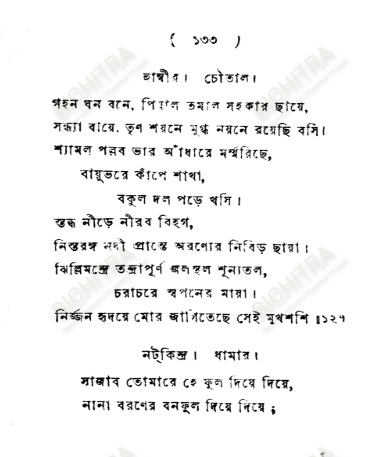 ( ১৩৩ )
হাম্বীর। চৌতাল।
গহন ঘন বনে, পিয়াল তমাল সহকার ছায়ে,
সন্ধ্যা বায়ে, তৃণ শয়নে মুগ্ধ নয়নে রয়েছি বসি।
শ্যামল পল্লব ভার আঁধারে মর্ম্মরিছে,
বায়ুভরে কাঁপে শাখা,
বকুল দল পড়ে খসি।
স্তব্ধ নীড়ে নীরব বিহগ,
নিস্তরঙ্গ নদী প্রান্তে অরণ্যের নিবিড় ছায়া।
ঝিল্লিমন্দ্রে তন্দ্রাপূর্ণ জলস্থল শূন্যতল,
চরাচরে স্বপনের মায়া।
নির্জ্জন হৃদয়ে মোর জাগিতেছে সেই মুখশশি॥১২৭
নট্‌কিন্দ্র। ধামার।
সাজাব তোমারে হে ফুল দিয়ে দিয়ে,
নানা বরণের বনফুল দিয়ে দিয়ে;
BICHITRA